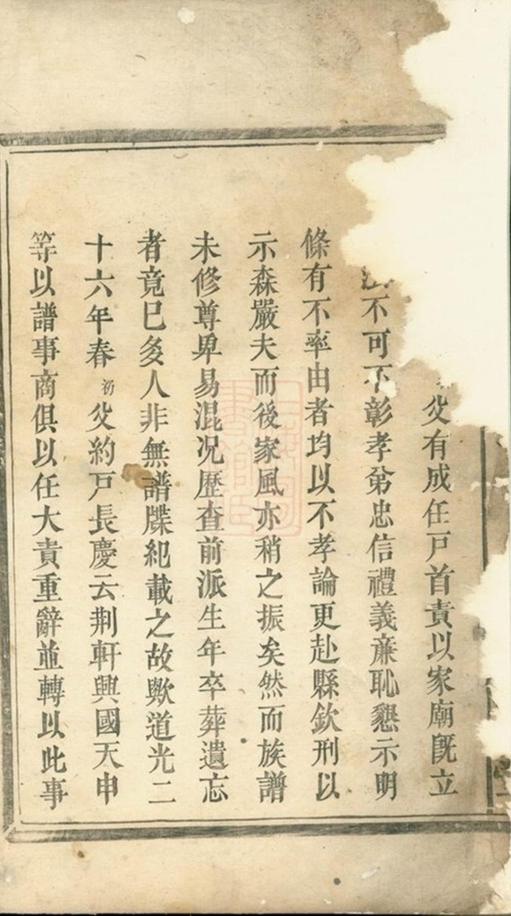 父有成任戸首責以家廟旣立
不可不彰孝弟忠信禮義亷恥懇示明
條有不率由者均以不孝論更赴縣欽刑以
示森嚴夫而後家風亦稍之振矣然而族譜
未修尊卑易混况歷查前派生年卒葬遺忘
者竟已多人非無譜牒紀載之故歟道光二
十六年春初父約戸長慶云荆軒興國天申
等以譜事商俱以任大責重辭並轉以此事